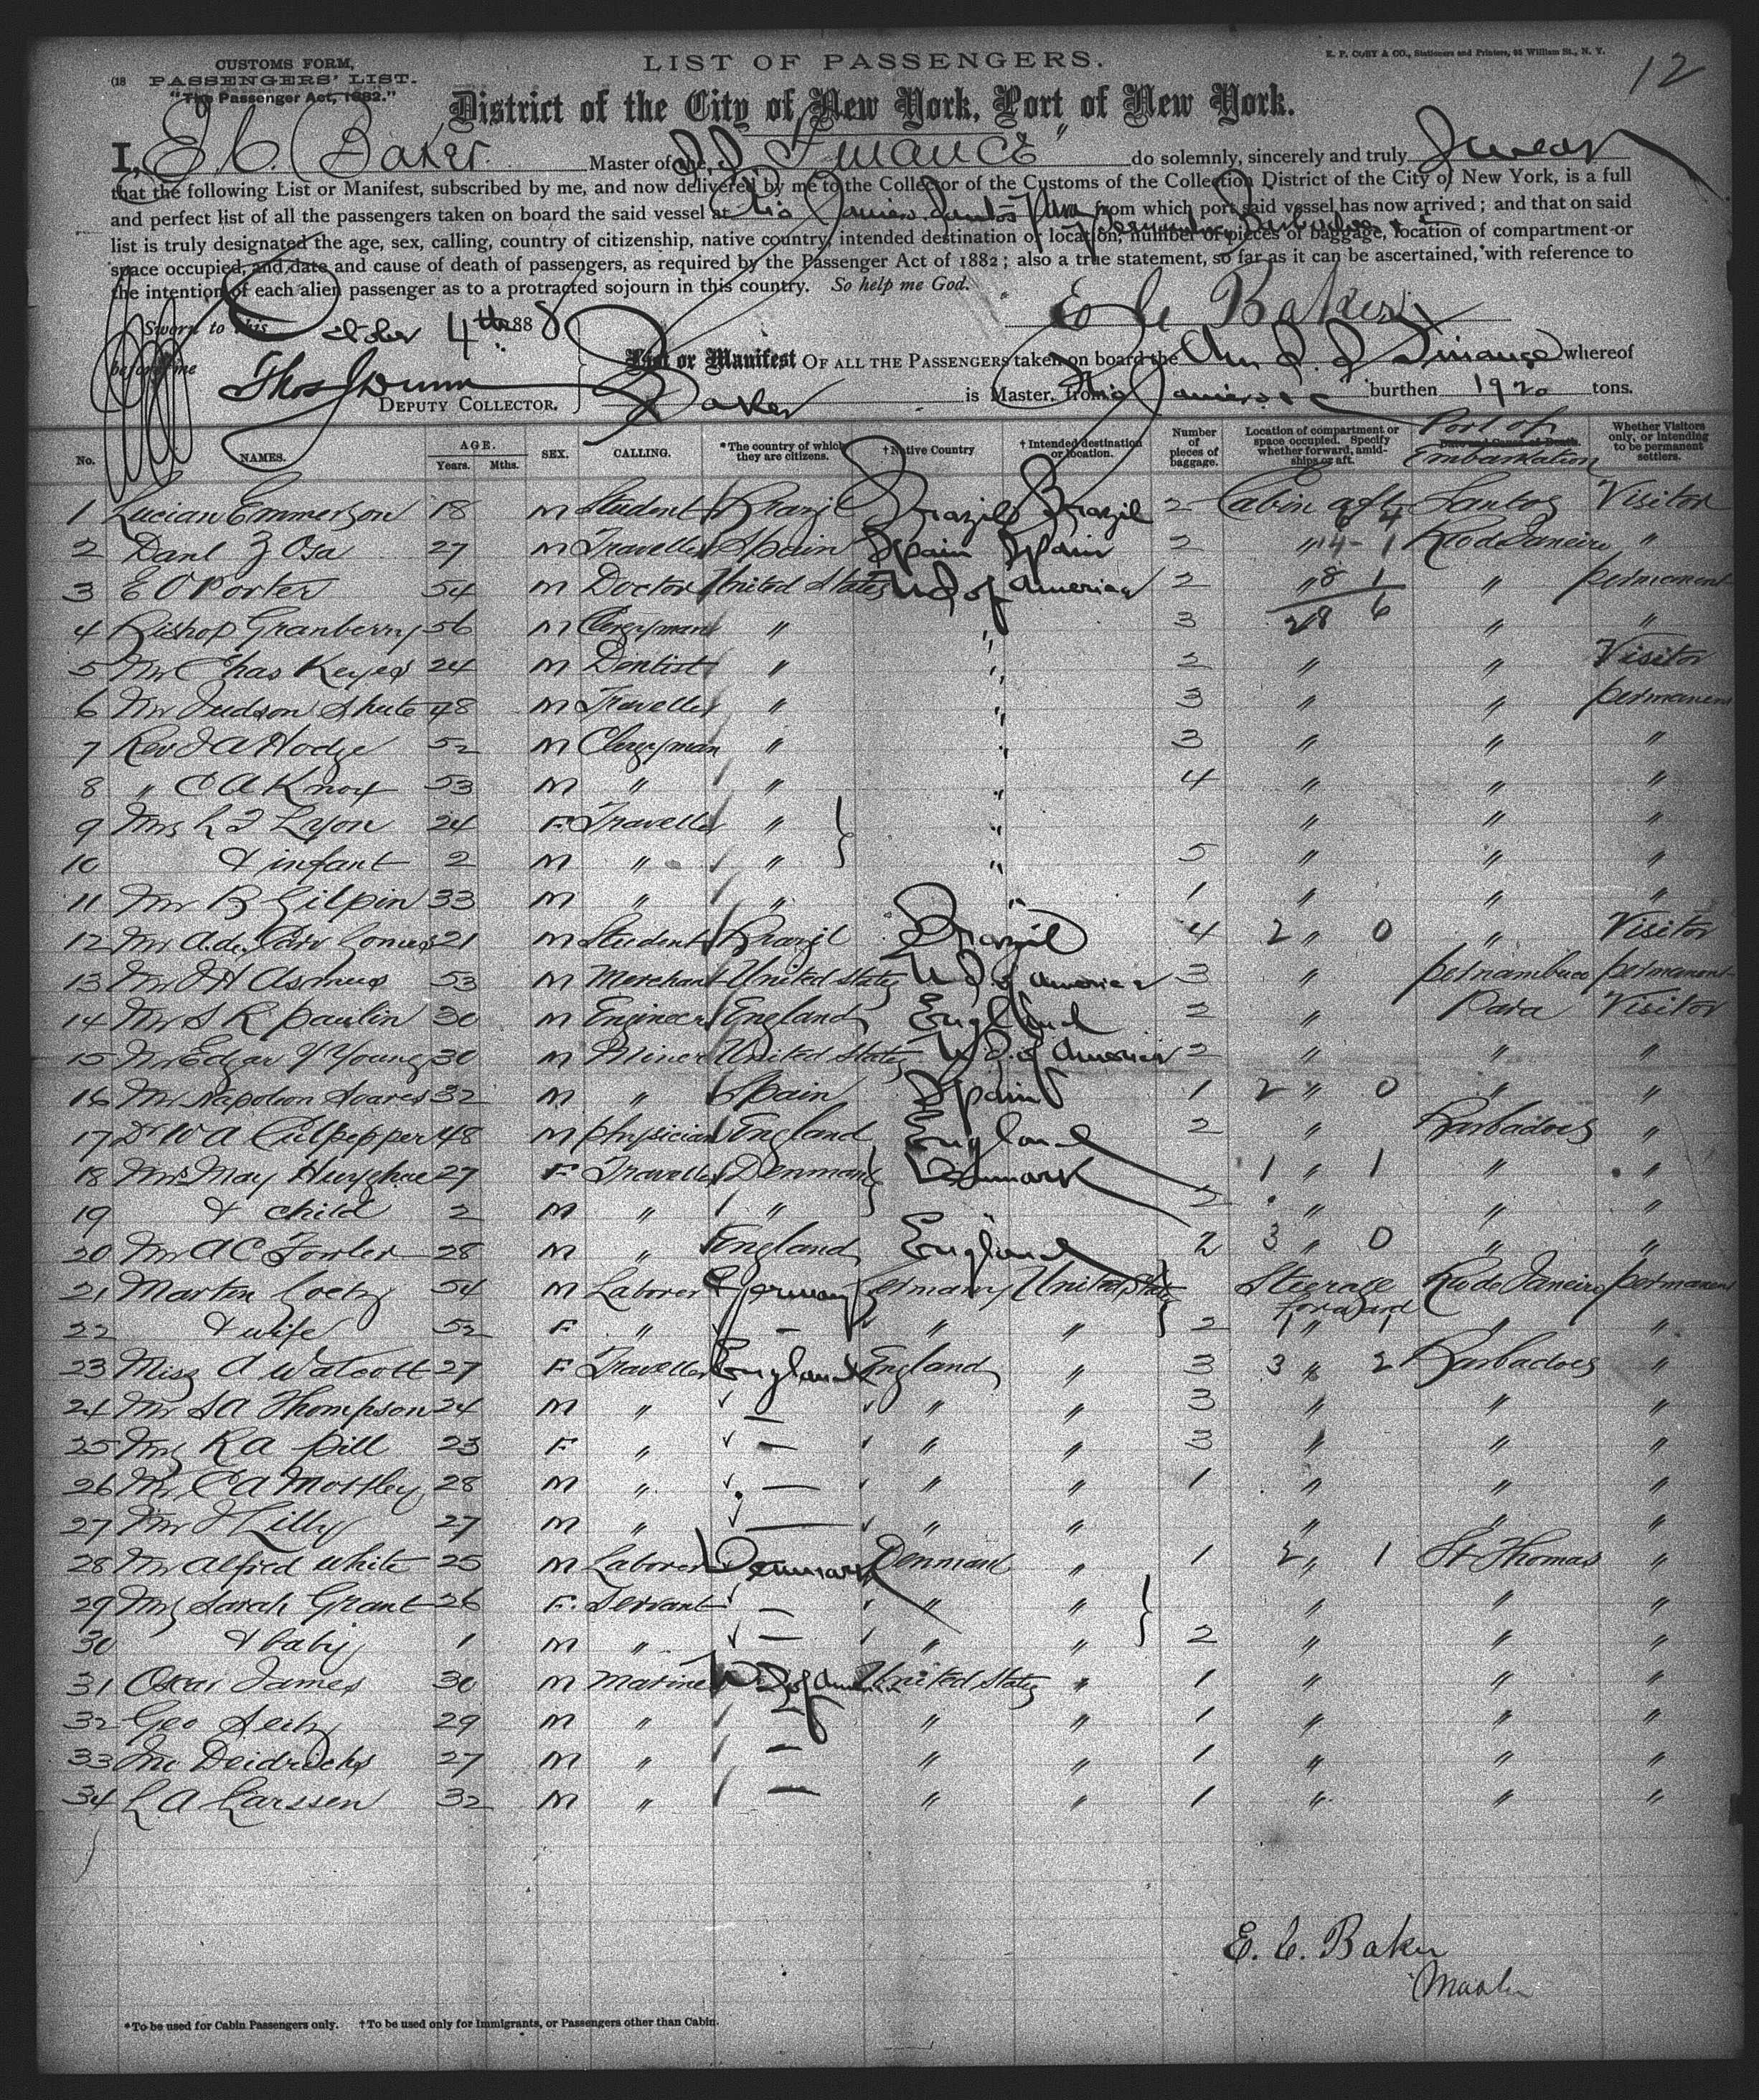 CUSTOMS FORM,
PASSENGERS' LIST.
"The Passenger Act, 1882."
LIST OF PASSENGERS.
E. P. COBY & CO., Stationers and Printers, 55 William St., N. Y.
12
District of the City of New York, Port of New York.
I, E. C. Baker Master of the S. S. "Finance" do solemnly, sincerely and truly Swear
that the following List or Manifest, subscribed by me, and now delivered by me to the Collector of the Customs of the Collection District of the City of New York, is a full
and perfect list of all the passengers taken on board the said vessel at Rio Janiero Santos Para from which port said vessel has now arrived; and that on said
Pernambuco Barbadoes
list is truly designated the age, sex, calling, country of citizenship, native country, intended destination or location, number of pieces of baggage, location of compartment or
space occupied, and date and cause of death of passengers, as required by the Passenger Act of 1882; also a true statement, so far as it can be ascertained, with reference to
the intention of each alien passenger as to a protracted sojourn in this country. So help me God.
E. C. Baker
Sworn to this October 4th 1888
before me
Thos J Dunn
DEPUTY COLLECTOR.
List or Manifest OF ALL THE PASSENGERS taken on board the Am S. S. Finance whereof
Baker is Master, from Rio Janiero &c burthen 1920 tons.
No. NAMES. AGE. Years. Mths. SEX. CALLING. *The country of which they are citizens. †Native Country †Intended destination or location. Number of pieces of baggage. Location of compartment or space occupied. Specify whether forward, amidships or aft. Date and Cause of Death. Port of Embarkation Whether Visitors only, or intending to be permanent settlers.
1 Lucian Emmerson 18 M Student Brazil Brazil Brazil 2 Cabin aft Santos Visitor
6 4
2 Danl Z Osa 27 M Traveller Spain Spain Spain 2 " 14 - 1 Rio de Janeiro "
3 E O Porter 54 M Doctor United States U S of America 2 " 8 1 " permanent
4 Bishop Granberry 56 M Clergyman " " 3 28 6 " "
5 Mr Chas Keyes 24 M Dentist " " 2 " " Visitor
6 Mr Judson Shute 48 M Traveller " " 3 " " permanent
7 Rev J A Hodge 52 M Clergyman " " 3 " " "
8 " C A Knox 53 M " " " 4 " " "
9 Mrs L F Lyon 24 F Traveller " " " " "
10 & infant 2 M " " " 5 " " "
11 Mr B Gilpin 33 M " " " 1 " " "
12 Mr A. de 21 M Student Brazil Brazil 4 2 " 0 " Visitor
13 Mr J H Asmus 53 M Merchant United States U S of America 3 " pernambuco permanent
14 Mr S R paulin 30 M Engineer England England 2 " Para Visitor
15 Mr Edgar Y Young 30 M Miner United States U. S. of America 2 " " "
16 Mr Napoleon Soares 32 M " Spain Spain 1 2 " 0 " "
17 Dr W A Culpepper 48 M physician England England 2 " Barbadoes "
18 Mrs May 27 F Traveller Denmark Denmark 1 " 1 " "
19 & child 2 M " " 2 " " "
20 Mr A C Fowler 28 M " England England 2 3 " 0 " "
21 Martin Goetz 54 M Laborer Germany Germany United States Steerage forward Rio de Janeiro permanent
22 & wife 52 F " – " " 2 1 " 1 " "
23 Miss A Walcott 27 F Traveller England England " 3 3 " 2 Barbadoes "
24 Mr S A Thompson 24 M " – " " 3 " " "
25 Mrs R A pill 23 F " – " " 3 " " "
26 Mr C A Mottley 28 M " – " " 1 " " "
27 Mr J Lilly 27 M " – " " " " "
28 Mr Alfred White 25 M Laborer Denmark Denmark " 1 2 " 1 St Thomas "
29 Mrs Sarah Grant 26 F. Servant – " " " " "
30 & baby 1 M " – " " 2 " " "
31 Oscar James 30 M Mariner U S of America United States " 1 " " "
32 Geo Seitz 29 M " – " " 1 " " "
33 Jno Deidrichs 27 M " – " " 1 " " "
34 L A Larssen 32 M " – " " 1 " " "
E. C. Baker
Master
*To be used for Cabin Passengers only. †To be used only for Immigrants, or Passengers other than Cabin.